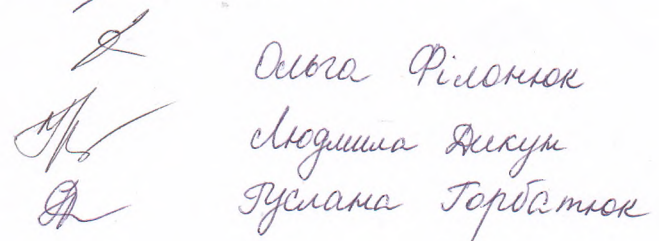 Ольга Філонюк
Людмила Дикун
Руслана Горбатюк